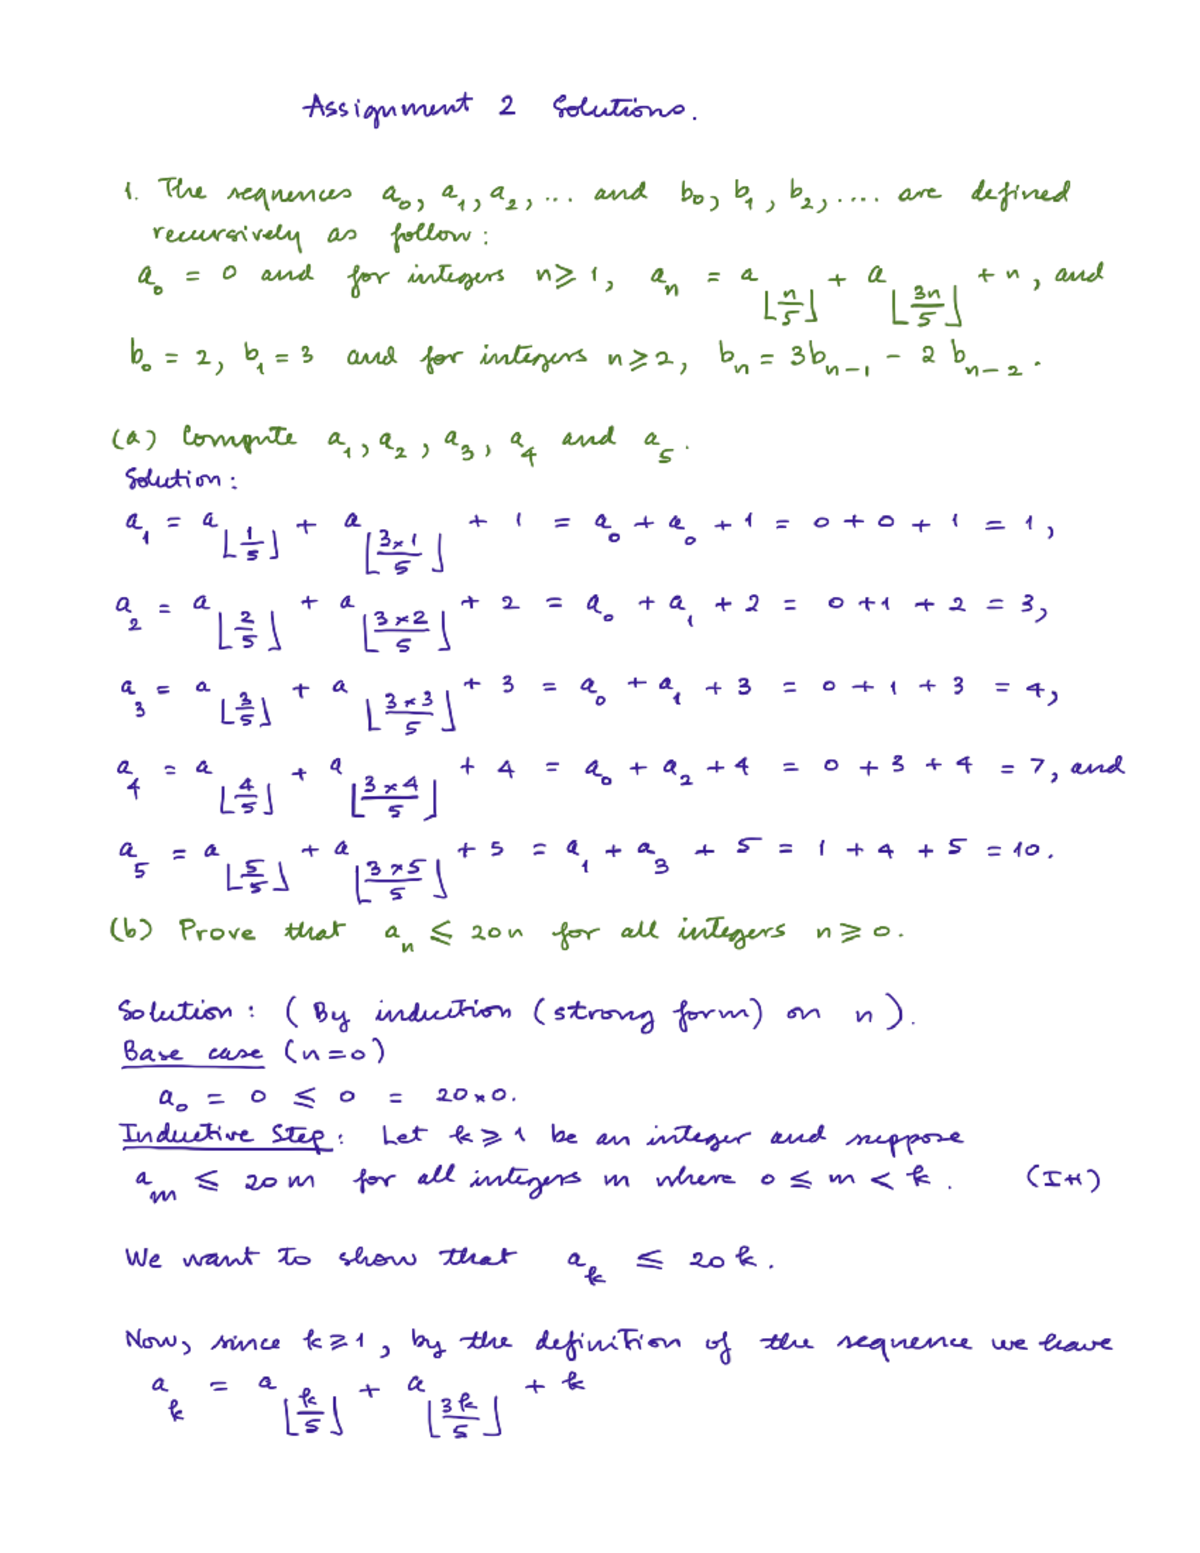 Assignment 2 Solutions.
1. The sequences a₀, a₁, a₂, ... and b₀, b₁, b₂, .... are defined
recursively as follow:
a₀ = 0 and for integers n ⩾ 1, aₙ = a_⌊n/5⌋ + a_⌊3n/5⌋ + n, and
b₀ = 2, b₁ = 3 and for integers n ⩾ 2, bₙ = 3bₙ₋₁ - 2bₙ₋₂.
(a) Compute a₁, a₂, a₃, a₄ and a₅.
Solution:
a₁ = a_⌊1/5⌋ + a_⌊3×1/5⌋ + 1 = a₀ + a₀ + 1 = 0 + 0 + 1 = 1,
a₂ = a_⌊2/5⌋ + a_⌊3×2/5⌋ + 2 = a₀ + a₁ + 2 = 0 + 1 + 2 = 3,
a₃ = a_⌊3/5⌋ + a_⌊3×3/5⌋ + 3 = a₀ + a₁ + 3 = 0 + 1 + 3 = 4,
a₄ = a_⌊4/5⌋ + a_⌊3×4/5⌋ + 4 = a₀ + a₂ + 4 = 0 + 3 + 4 = 7, and
a₅ = a_⌊5/5⌋ + a_⌊3×5/5⌋ + 5 = a₁ + a₃ + 5 = 1 + 4 + 5 = 10.
(b) Prove that aₙ ⩽ 20n for all integers n ⩾ 0.
Solution: (By induction (strong form) on n).
Base case (n=0)
a₀ = 0 ⩽ 0 = 20×0.
Inductive Step: Let k ⩾ 1 be an integer and suppose
aₘ ⩽ 20m for all integers m where 0 ⩽ m < k. (IH)
We want to show that aₖ ⩽ 20k.
Now, since k ⩾ 1, by the definition of the sequence we have
aₖ = a_⌊k/5⌋ + a_⌊3k/5⌋ + k